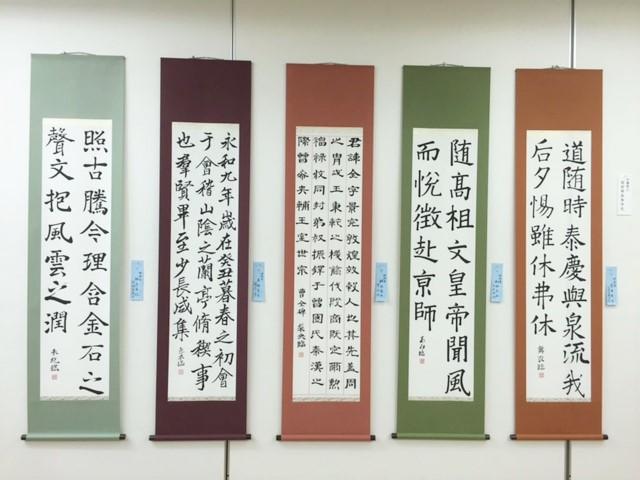 道随時泰慶與泉流我
后夕惕雖休弗休
随髙祖文皇帝聞風
而悅徴赴京師
君諱全字景完敦煌效穀人也其先蓋周
之胄武王秉乾之機翦伐殷商既定爾勲
福祿攸同封弟叔振鐸于曹國氏秦漢之
際曹參夾輔王室世宗 曹全碑 臨
永和九年歳在癸丑暮春之初會
于會稽山陰之蘭亭脩禊事
也羣賢畢至少長咸集 臨
照古騰今理含金石之
聲文抱風雲之潤 臨